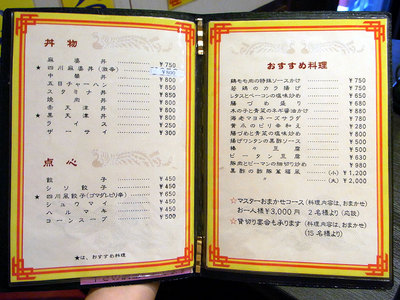 丼物
麻婆丼 ¥750
★四川麻婆丼(激辛) ¥800
中華丼 ¥800
五目チャーハン ¥850
スタミナ丼 ¥850
焼肉丼 ¥850
天津丼 ¥850
★黒天津丼 ¥850
ライス ¥250
ザーサイ ¥300
点心
餃子 ¥450
シソ餃子 ¥450
★四川風餃子(ゴマダレピリ辛) ¥650
シュウマイ ¥450
ハルマキ ¥450
コーンスープ ¥500
★は、おすすめ料理
おすすめ料理
鶏モモ肉の特製ソースかけ ¥750
若鶏のカラ揚げ ¥750
レタスとベーコンの塩味炒め ¥680
腸づめ盛り ¥680
ホタテと青菜のネギ醤油かけ
海老マヨネーズサラダ ¥780
黄ニラのピリ辛和え ¥280
腸づめと青菜の塩味炒め ¥680
揚げワンタンの黒酢ソース ¥580
棒々豆腐 ¥580
ピータン豆腐 ¥630
豚肉とピーマンの細切り炒め ¥980
黒酢の酢豚 (小) ¥1,200
〃 (大) ¥2,000
☆マスターおまかせコース(料理内容は、おまかせ)
お一人様¥3,000円 2名様より(応談)
☆貸切り宴会も承ります(料理内容は、おまかせ)
(15名様より)